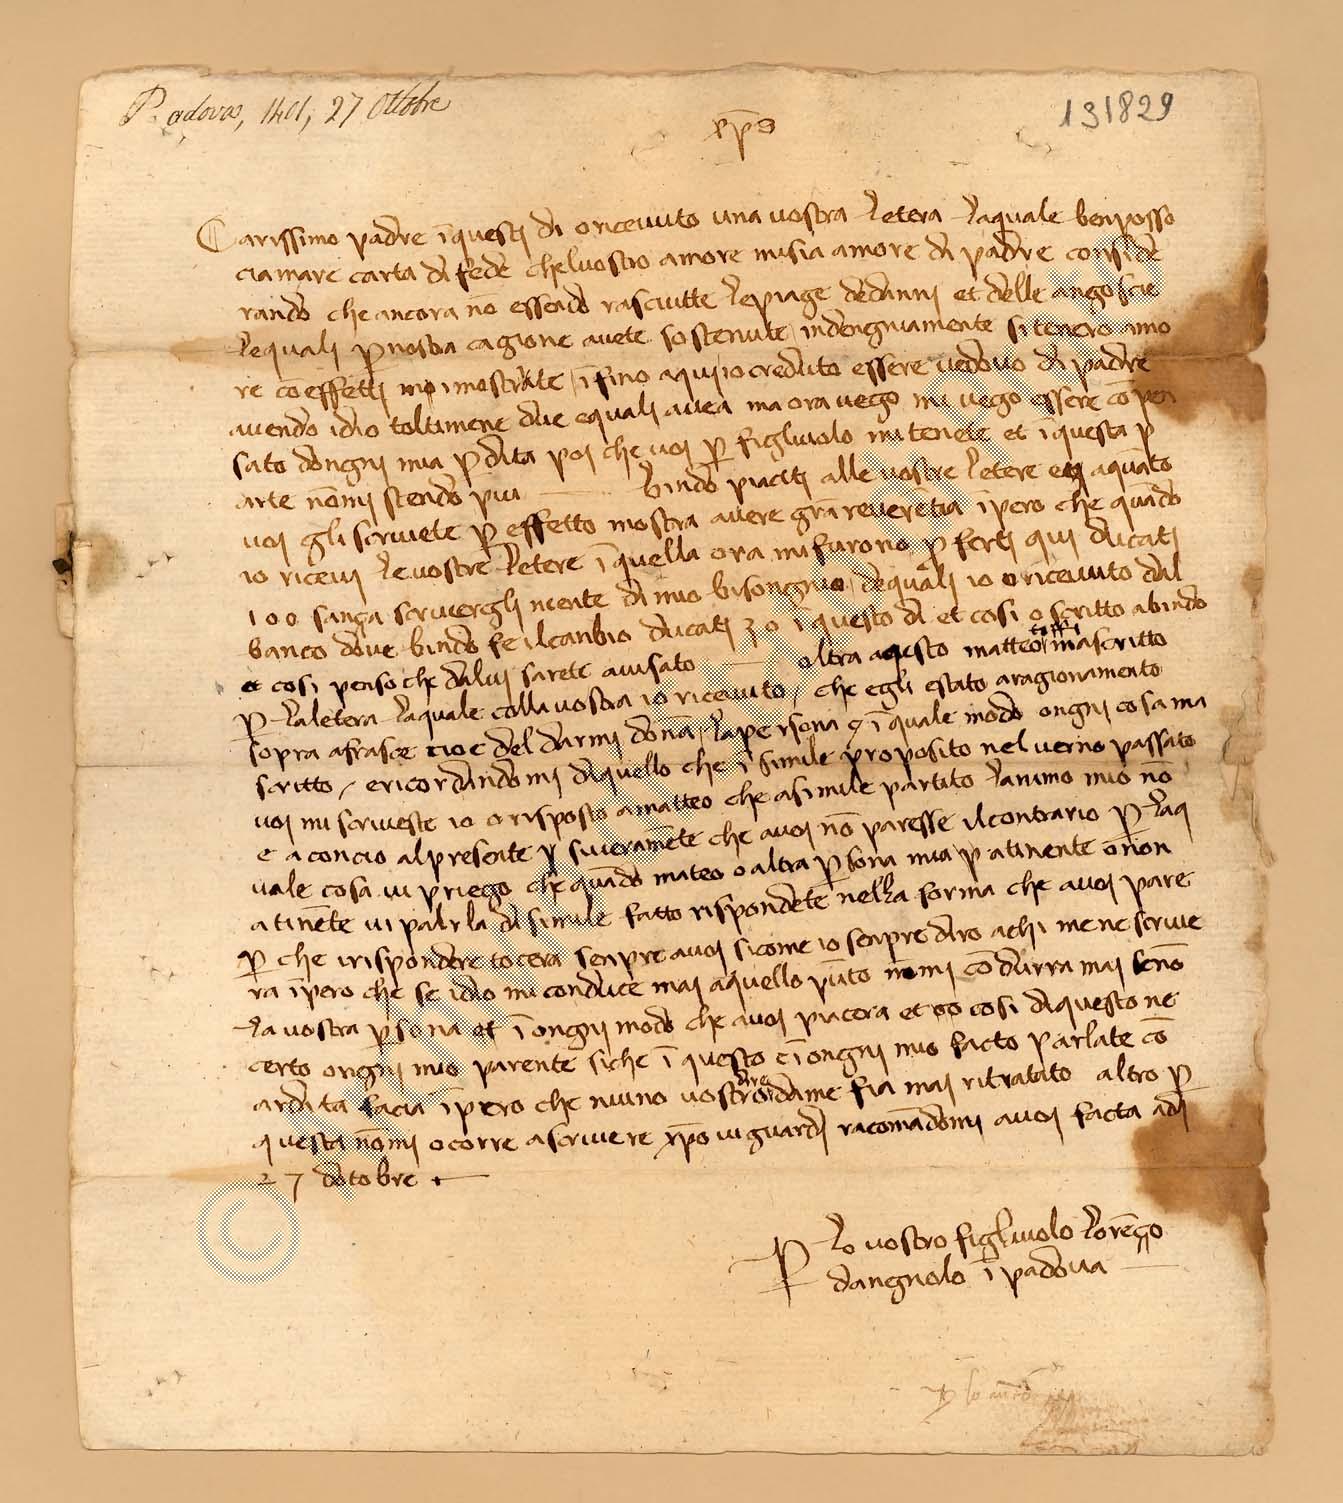 Padova, 1401, 27 Ottobre
131829
xp̄s
Carissimo padre ī questi di o ricevuto una vostra letera laquale ben posso
ciamare carta di fede chelvostro amore misia amore di padre conside
rando che ancora nō essendo rasciutte lepiage dedanni et delle angoscie
lequali p̄ nostra cagione avete sostenute indengniamente sitenero amo
re cō effetti mi mostrate ī fino aqui io creduto essere vedovo di padre
avendo idio toltimene due equali avea ma ora vego mi vego essere cō pen
sato dongni mia p̄dita poi che voi p̄ figliuolo mi tenete et ī questa p
arte nōmi stendo piu bindo piaciti alle vostre letere et aquāto
voi gli scrivete p̄ effetto mostra avere grā reverētia ī pero che quādo
io ricevi levostre letere ī quella ora mi furono p̄ ferti qui ducati
100 sança scrivergli niente di mio bisongnio dequali io o ricevuto dal
banco dove bindo fe ilcanbio ducati 30 ī questo di et cosi o scritto abindo
et cosi penso che dalui sarete avisato oltra aquesto matteo ma scritto
p̄ laletera laquale colla vostra io ricevuto / che egli estato aragionamento
sopra afrasce cioe del darmi dōna / la persona ę ī quale modo ongni cosa ma
scritto / ericordandomi diquello che ī simile proposito nel verno passato
voi mi scriveste io o risposto amatteo che asimile partito lanimo mio nō
e aconcio alpresente y siveramēte che avoi nō paresse ilcontrario p̄ laq
uale cosa vi priego che quādo mateo o altra p̄sona mia p̄ atinente o nōn
atinēte vi palrla di simile fatto rispondete nella forma che avoi pare
p̄ che irispondere tocera senpre avoi sicome io senpre diro achi mene scrive
ra ī pero che se idio mi conduce mai aquello pūto nōmi cō durra mai senō
la vostra p̄sona et ī ongni modo che avoi piacera et so cosi diquesto ne
certo ongni mio parente siche ī questo e ī ongni mio facto parlate cō
ardita facia ī pero che niuno vostro dire dame fia mai ritratato altro p̄
questa nōmi ocorre ascrivere xp̄o vi guardi racomādomi avoi facta adi
27 dotobre
P̄ lo vostro figliuolo lorēço
dangnolo ī padova